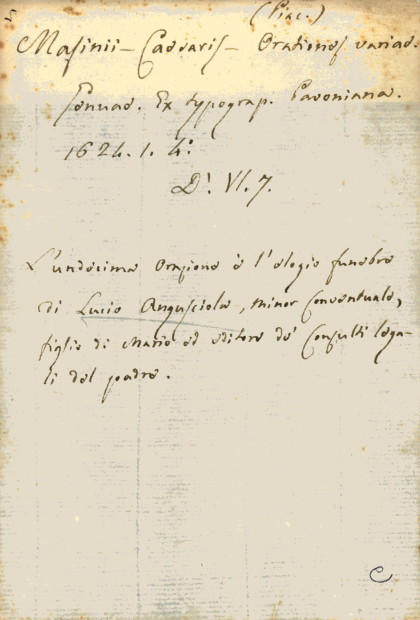 (Piac.)
Masinii - Caesaris - Orationes variae.
Genuae. Ex typograp. Pavoniana.
1624. 1. 4°.
D'. VI. 7.
L'undecima Orazione è l'elogio funebre
di Lucio Anguisciola, Minor Conventuale,
figlio di Mario ed editore de' Consulti lega-
li del padre.
C